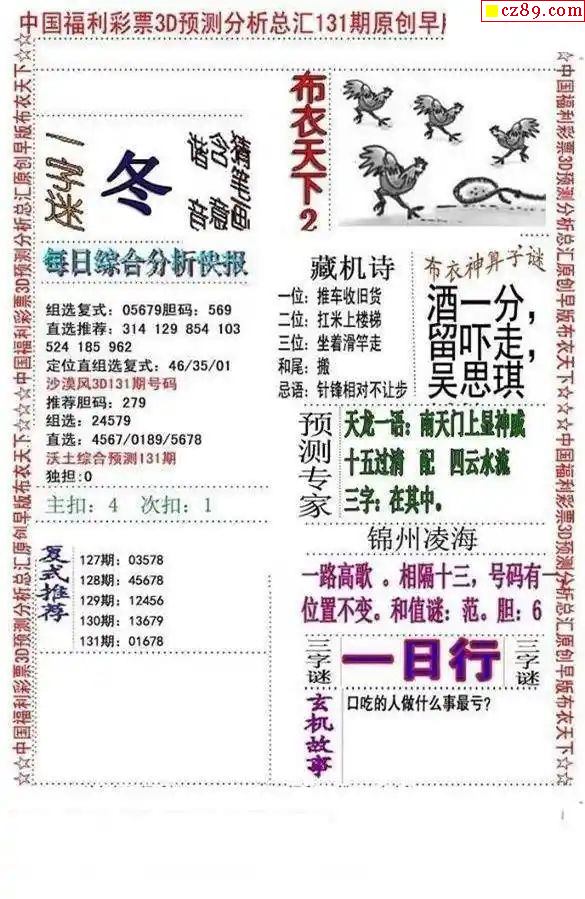 cz89.com
中国福利彩票3D预测分析总汇131期原创早版
☆☆中国福利彩票3D预测分析总汇原创早版布衣天下☆☆中国福利彩票3D预测分析总汇原创早版布衣天下☆☆
一字迷
冬
猜笔画
含意
谐音
布衣天下2
每日综合分析快报
组选复式：05679胆码：569
直选推荐：314 129 854 103
524 185 962
定位直组选复式：46/35/01
沙漠风3D131期号码
推荐胆码：279
组选：24579
直选：4567/0189/5678
沃土综合预测131期
独担：0
主扣：4 次扣：1
复式推荐
127期：03578
128期：45678
129期：12456
130期：13679
131期：01678
藏机诗
一位：推车收旧货
二位：扛米上楼梯
三位：坐着滑竿走
和尾：搬
忌语：针锋相对不让步
布衣神算子谜
酒一分，
留吓走，
吴思琪
预测专家
天龙一语：南天门上显神威
十五过清 配 四云水流
三字：在其中。
锦州凌海
一路高歌 。相隔十三，号码有一
位置不变。和值谜：范。胆：6
三字谜
一日行
三字谜
玄机故事
口吃的人做什么事最亏?
☆中国福利彩票3D预测分析总汇原创早版布衣天下☆☆中国福利彩票3D预测分析总汇原创早版布衣天下☆☆